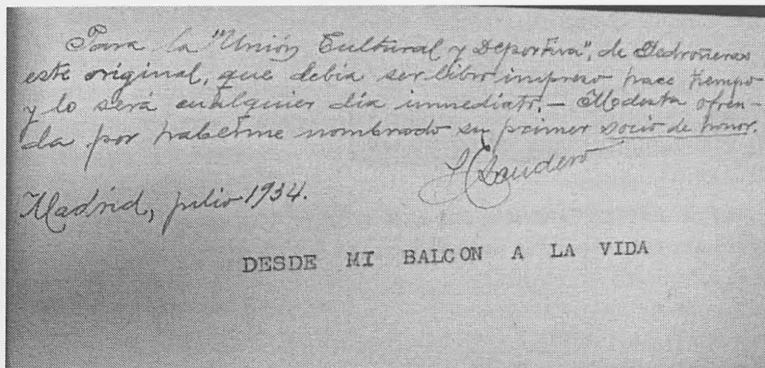 Para la "Unión Cultural y Deportiva", de Pedroñeras
este original, que debía ser libro impreso hace tiempo
y lo será cualquier día inmediato.— Modesta ofren-
da por haberme nombrado su primer socio de honor.
Madrid, julio 1934.
DESDE MI BALCON A LA VIDA